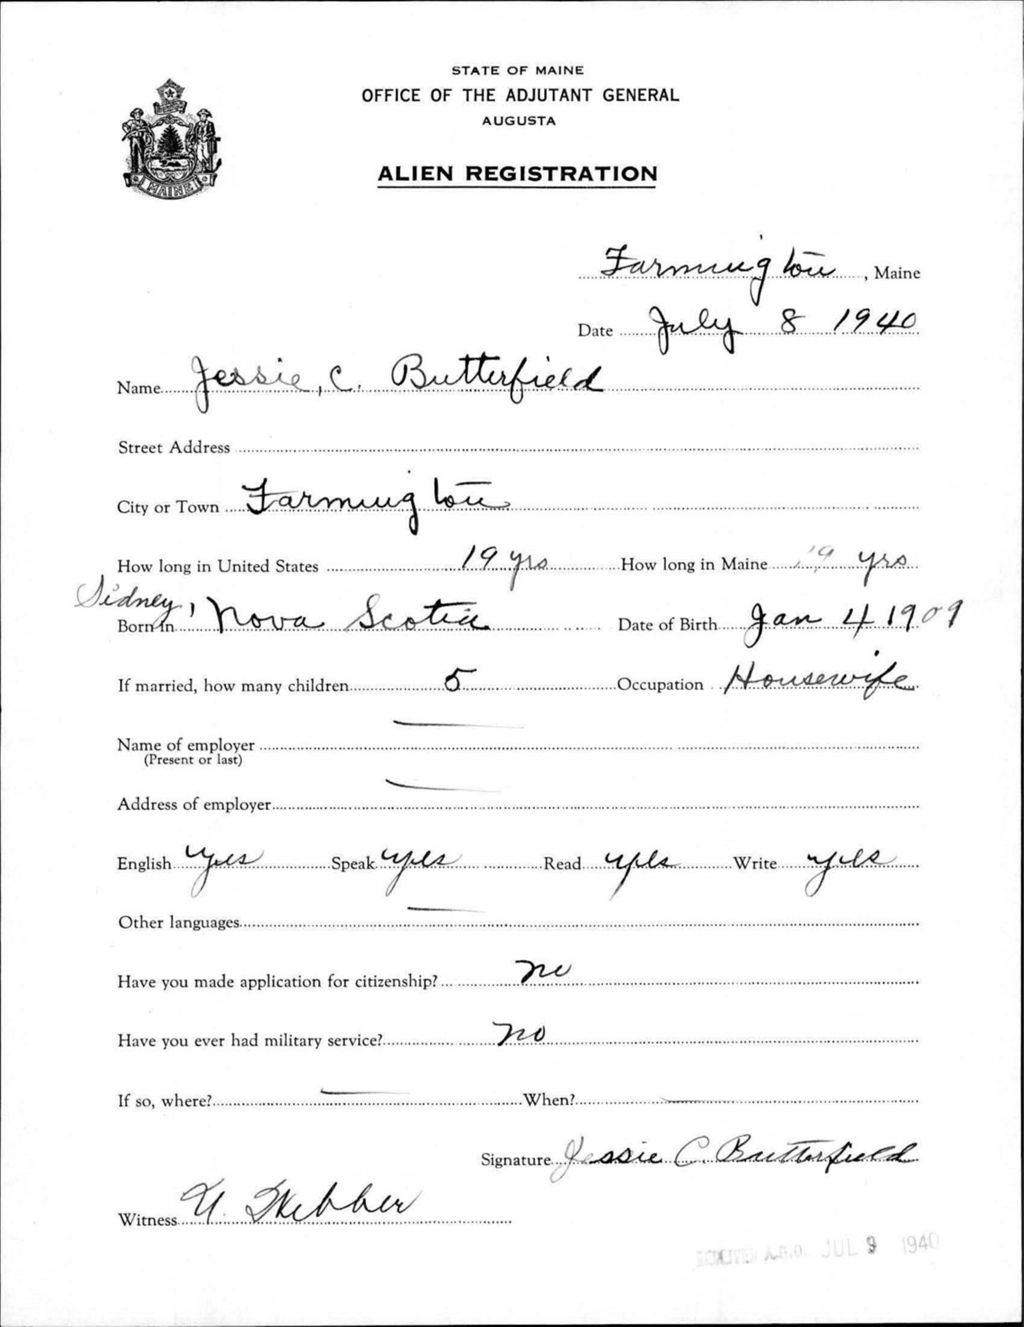 STATE OF MAINE
OFFICE OF THE ADJUTANT GENERAL
AUGUSTA
ALIEN REGISTRATION
MAINE
Farmington, Maine
Date July 8 1940
Name Jessie, C. Butterfield
Street Address
City or Town Farmington
How long in United States 19 yrs How long in Maine 19 yrs
Sidney,
Born in Nova Scotia Date of Birth Jan 4 1909
If married, how many children 5 Occupation Housewife
Name of employer —
(Present or last)
Address of employer —
English yes Speak yes Read yes Write yes
Other languages —
Have you made application for citizenship? no
Have you ever had military service? no
If so, where? — When? —
Signature Jessie C. Butterfield
Witness Webber
JUL 9 1940